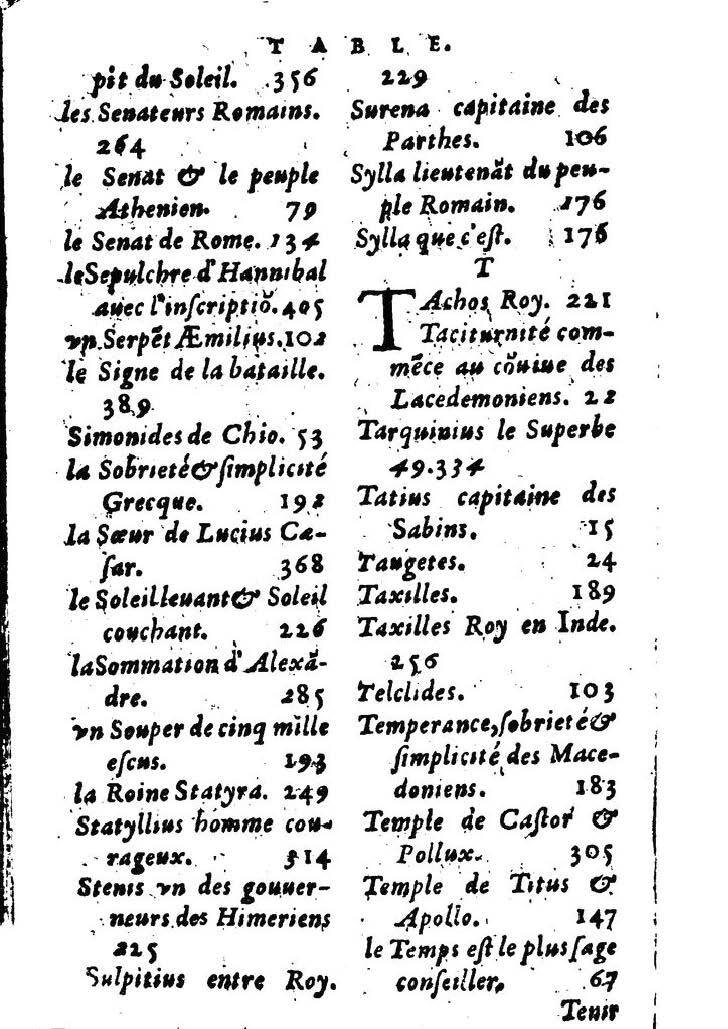 TABLE.
pit du Soleil. 356
les Senateurs Romains.
264
le Senat & le peuple
Athenien. 79
le Senat de Rome. 134
le Sepulchre d'Hannibal
auec l'inſcriptiõ. 405
vn Serpẽt Æmilius. 102
le Signe de la bataille.
389
Simonides de Chio. 53
la Sobrieté & ſimplicité
Grecque. 192
la Sœur de Lucius Ca-
ſar. 368
le Soleil leuant & Soleil
couchant. 226
la Sommation d'Alexã-
dre. 285
vn Souper de cinq mille
eſcus. 193
la Roine Statyra. 249
Statyllius homme cou-
rageux. 314
Stenis vn des gouuer-
neurs des Himeriens
225
Sulpitius entre Roy.
229
Surena capitaine des
Parthes. 106
Sylla lieutenãt du peu-
ple Romain. 176
Sylla que c'eſt. 176
T
TAchos Roy. 221
Taciturnité com-
mẽce au cõuiue des
Lacedemoniens. 22
Tarquinius le Superbe
49.334
Tatius capitaine des
Sabins. 15
Taugetes. 24
Taxilles. 189
Taxilles Roy en Inde.
256
Telclides. 103
Temperance, ſobrieté &
ſimplicité des Mace-
doniens. 183
Temple de Caſtor &
Pollux. 305
Temple de Titus &
Apollo. 147
le Temps eſt le plus ſage
conſeiller. 67
Tenir